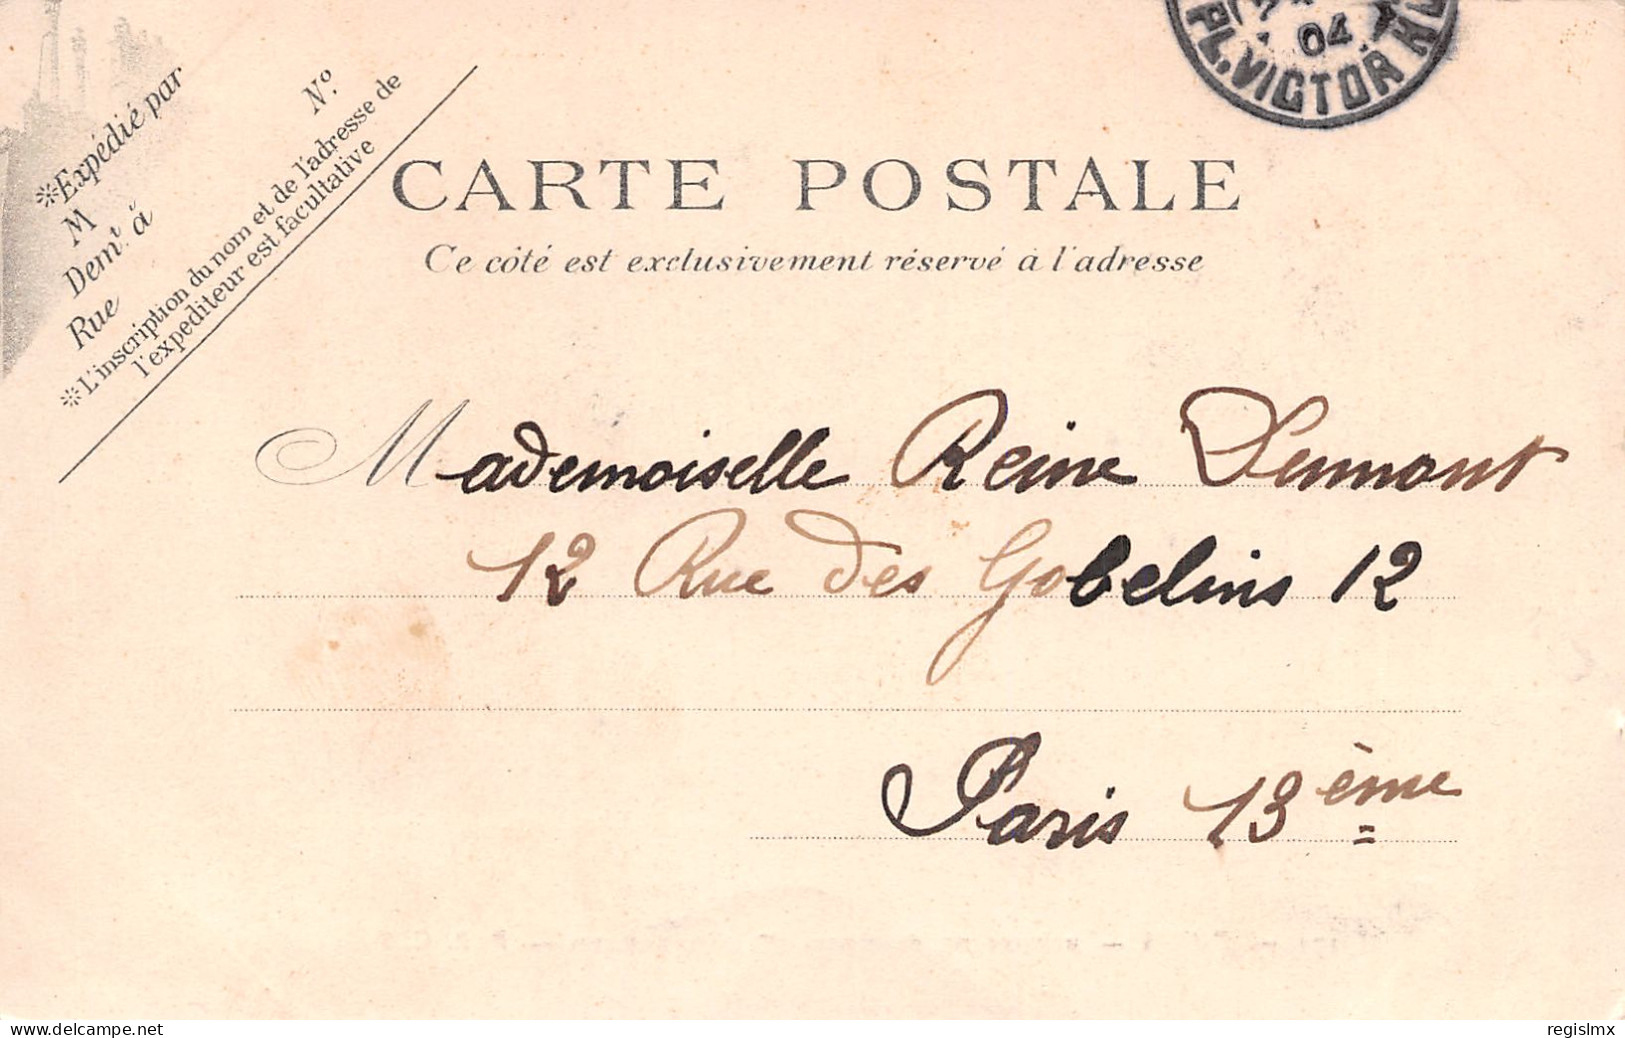 PL. VICTOR HU
04
✻Expédié par
M
Demt à
Rue
No.
✻L'inscription du nom et de l'adresse de
l'expéditeur est facultative
CARTE POSTALE
Ce côté est exclusivement réservé à l'adresse
Mademoiselle Reine
12 Rue des Gobelins 12
Paris 13ème
www.delcampe.net
regislmx